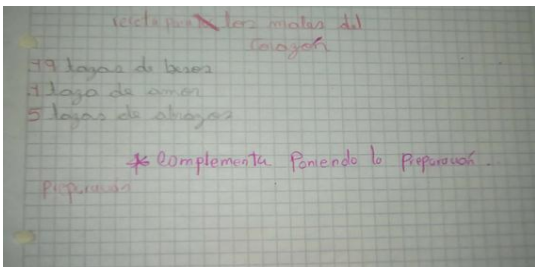 receta para los males del
Corazón
19 tazas de besos
1 taza de amor
5 tazas de abrazos
* Complementa Poniendo la Preparación.
Preparación